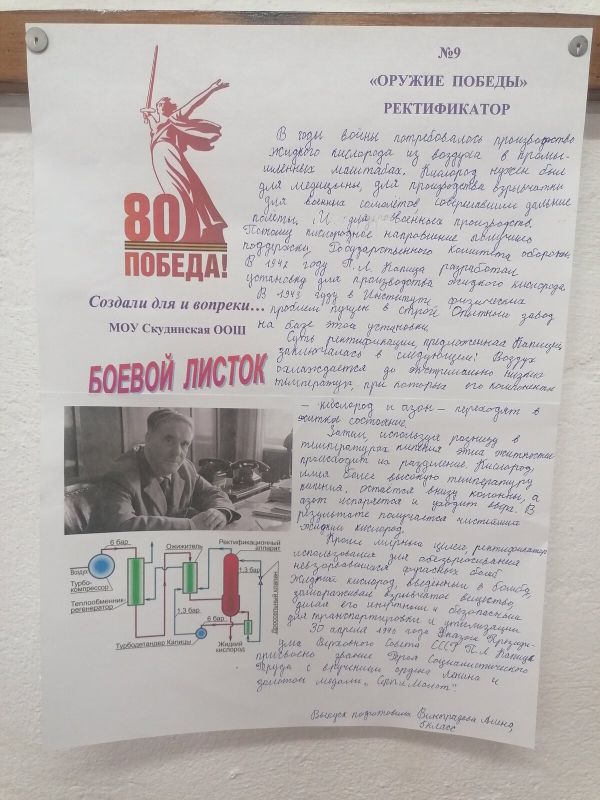 №9
«ОРУЖИЕ ПОБЕДЫ»
РЕКТИФИКАТОР
80
ПОБЕДА!
Создали для и вопреки…
МОУ Скудинская ООШ
БОЕВОЙ ЛИСТОК
В годы войны потребовалось производство
жидкого кислорода из воздуха в промыш-
ленных масштабах. Кислород нужен был
для медицины, для производства взрывчатки
для военных самолётов совершавших дальние
полёты. И для военных производств.
Потому кислородное направление получило
поддержку Государственного Комитета обороны.
В 1942 году П.Л. Капица разработал
установку для производства жидкого кислорода.
В 1943 году в Институте физических
проблем пущен в строй Опытный завод
на базе этой установки.
Суть ректификации, предложенная Капицей,
заключалась в следующем: Воздух
охлаждается до экстримально низких
температур, при которых его компоненты
– кислород и азон – переходят в
жидкое состояние.
Затем, используя разницу в
температурах кипения этих жидкостей
происходит их разделение. Кислород,
имея более высокую температуру
кипения, остаётся внизу колонны, а
азот испаряется и уходит вверх. В
результате получается чистейший
жидкий кислород.
Кроме мирных целей, ректификатор
использовался для обезвреживания
невзорвавшихся фугасных бомб.
Жидкий кислород, введенный в бомбу,
замораживал взрывчатое вещество,
делая его инертным и безопасным
для транспортировки и утилизации.
30 апреля 1945 года Указом Президи-
ума Верховного Совета СССР П.Л Капице
присвоено звание Героя Социалистического
Труда с вручением ордена Ленина и
золотой медали „Серп и Молот".
Выпуск подготовила Виноградова Алина,
класс
6 бар
Ожижитель
Ректификационный
аппарат
Воздух
Турбо-
компрессор
1,3 бар
Теплообменник-
регенератор
1,3 бар
6 бар
Дроссельный клапан
Турбодетандер Капицы
Жидкий
кислород